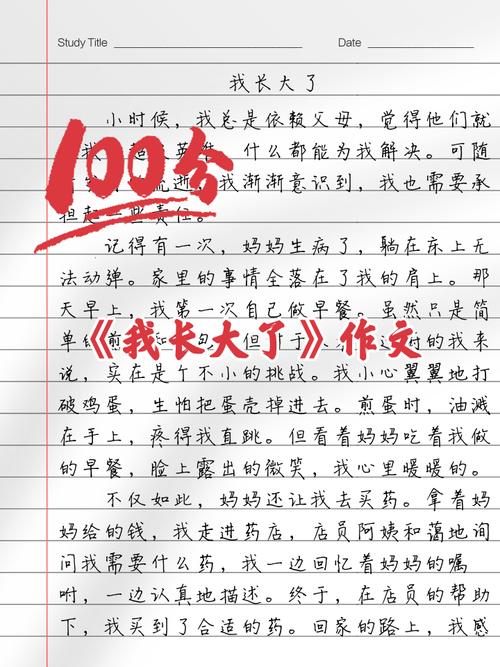 Study Title
Date
我长大了
小时候，我总是依赖父母，觉得他们就
我 超 英雄 什么都能为我解决。可随
流逝，我渐渐意识到，我也需要承
担起一些责任。
100分
记得有一次，妈妈生病了，躺在床上无
法动弹。家里的事情全落在了我的肩上。那
天早上，我第一次自己做早餐。虽然只是简
单的煎 但 于 时的我来
《我长大了》作文
说，实在是个不小的挑战。我小心翼翼地打
破鸡蛋，生怕把蛋壳掉进去。煎蛋时，油溅
在手上，疼得我直跳。但看着妈妈吃着我做
的早餐，脸上露出的微笑，我心里暖暖的。
不仅如此，妈妈还让我去买药。拿着妈
妈给的钱，我走进药店，店员阿姨和蔼地询
问我需要什么药，我一边回忆着妈妈的嘱
咐，一边认真地描述。终于，在店员的帮助
下，我买到了合适的药。回家的路上，我感